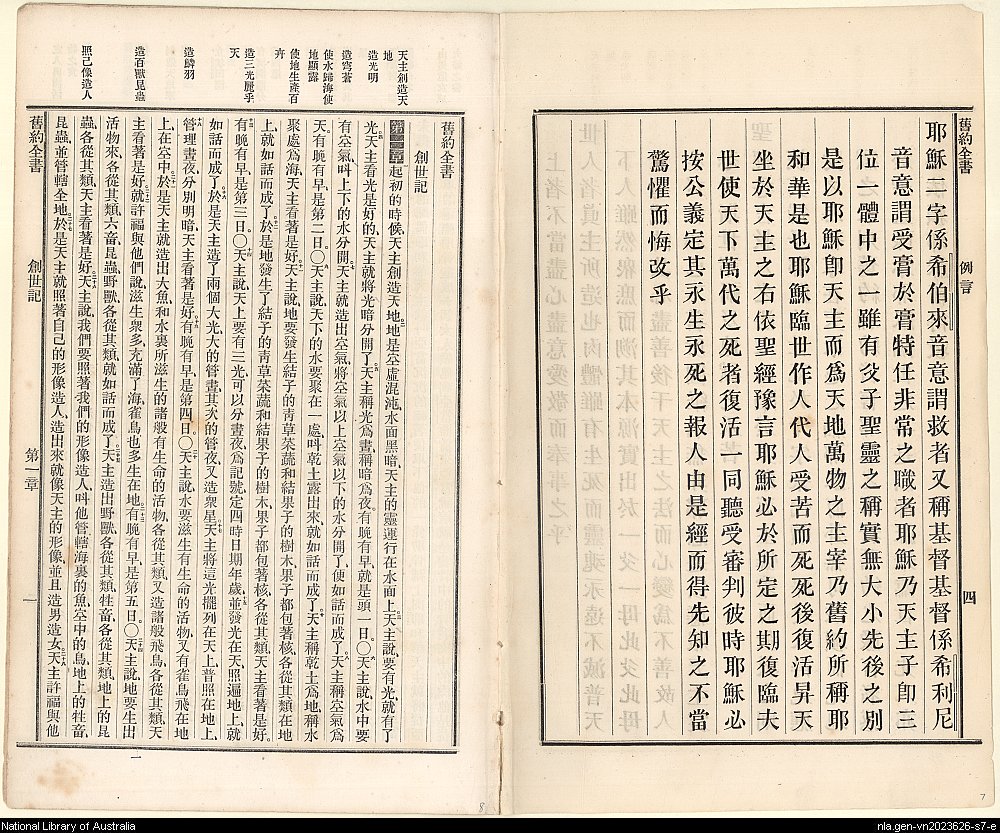 舊約全書　例言　四
耶穌二字係希伯來音意謂救者又稱基督基督係希利尼
音意謂受膏於膏特任非常之職者耶穌乃天主子卽三
位一體中之一雖有父子聖靈之稱實無大小先後之別
是以耶穌卽天主而爲天地萬物之主宰乃舊約所稱耶
和華是也耶穌臨世作人代人受苦而死死後復活昇天
坐於天主之右依聖經豫言耶穌必於所定之期復臨夫
世使天下萬代之死者復活一同聽受審判彼時耶穌必
按公義定其永生永死之報人由是經而得先知之不當
驚懼而悔改乎
7
天主創造天
地
造光明
造穹蒼
使水歸海使
地顯露
使地生產百
卉
造三光麗乎
天
造鱗羽
造百獸昆蟲
照己像造人
舊約全書
創世記
第一章起初的時候、天主創造天地。地是空虛混沌、水面黑暗、天主的靈運行在水面上。天主說、要有光、就有了
光。天主看光是好的、天主就將光暗分開了。天主稱光爲晝、稱暗爲夜、有晚有早、就是頭一日。〇天主說、水中要
有空氣、呌上下的水分開。天主就造出空氣、將空氣以上空氣以下的水分開了、便如話而成了。天主稱空氣爲
天。有晚有早、是第二日。〇天主說、天下的水要聚在一處、呌乾土露出來、就如話而成了。天主稱乾土爲地、稱水
聚處爲海、天主看著是好。天主說、地要發生結子的靑草菜蔬和結果子的樹木、果子都包著核、各從其類、在地
上、就如話而成了。於是地發生了結子的靑草菜蔬和結果子的樹木、果子都包著核、各從其類、天主看著是好。
有晚有早、是第三日。〇天主說、天上要有三光、可以分晝夜、爲記號、定四時日期年歲、並發光在天、照遍地上、就
如話而成了。於是天主造了兩個大光、大的管晝、其次的管夜、又造衆星。天主將這光擺列在天上、普照在地上、
管理晝夜、分別明暗、天主看著是好。有晚有早、是第四日。〇天主說、水要滋生有生命的活物、又有雀鳥飛在地
上、在空中。於是天主就造出大魚、和水裏所滋生的諸般有生命的活物、各從其類、又造諸般飛鳥、各從其類、天
主看著是好。就許福與他們說、滋生衆多、充滿了海、雀鳥也多生在地。有晚有早、是第五日。〇天主說、地要生出
活物來、各從其類、六畜、昆蟲、野獸、各從其類、就如話而成了。天主造出野獸、各從其類、牲畜、各從其類、地上的昆
蟲、各從其類、天主看著是好。天主說、我們要照著我們的形像造人、呌他管轄海裏的魚、空中的鳥、地上的牲畜、
昆蟲、並管轄全地。於是天主就照著自己的形像造人、造出來就像天主的形像、並且造男造女。天主許福與他
舊約全書　創世記　第一章　一
一
8
National Library of Australia
nla.gen-vn2023626-s7-e